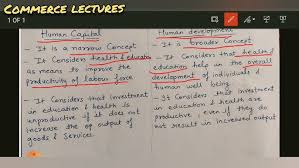 COMMERCE LECTURES
1 OF 1
Human Capital
- It is a narrow Concept
- It Considers health & education
as means to improve the
productivity of labour force
- It Considers that investment
in education & health is
unproductive if it does not
increase the op output of
goods & Services
Human development
- It is broader Concept
- It Considers that health/
education help in the overall
development of individuals &
human well being
- It Considers that investment
in education & health are
productive, even if they do
not result in increased output